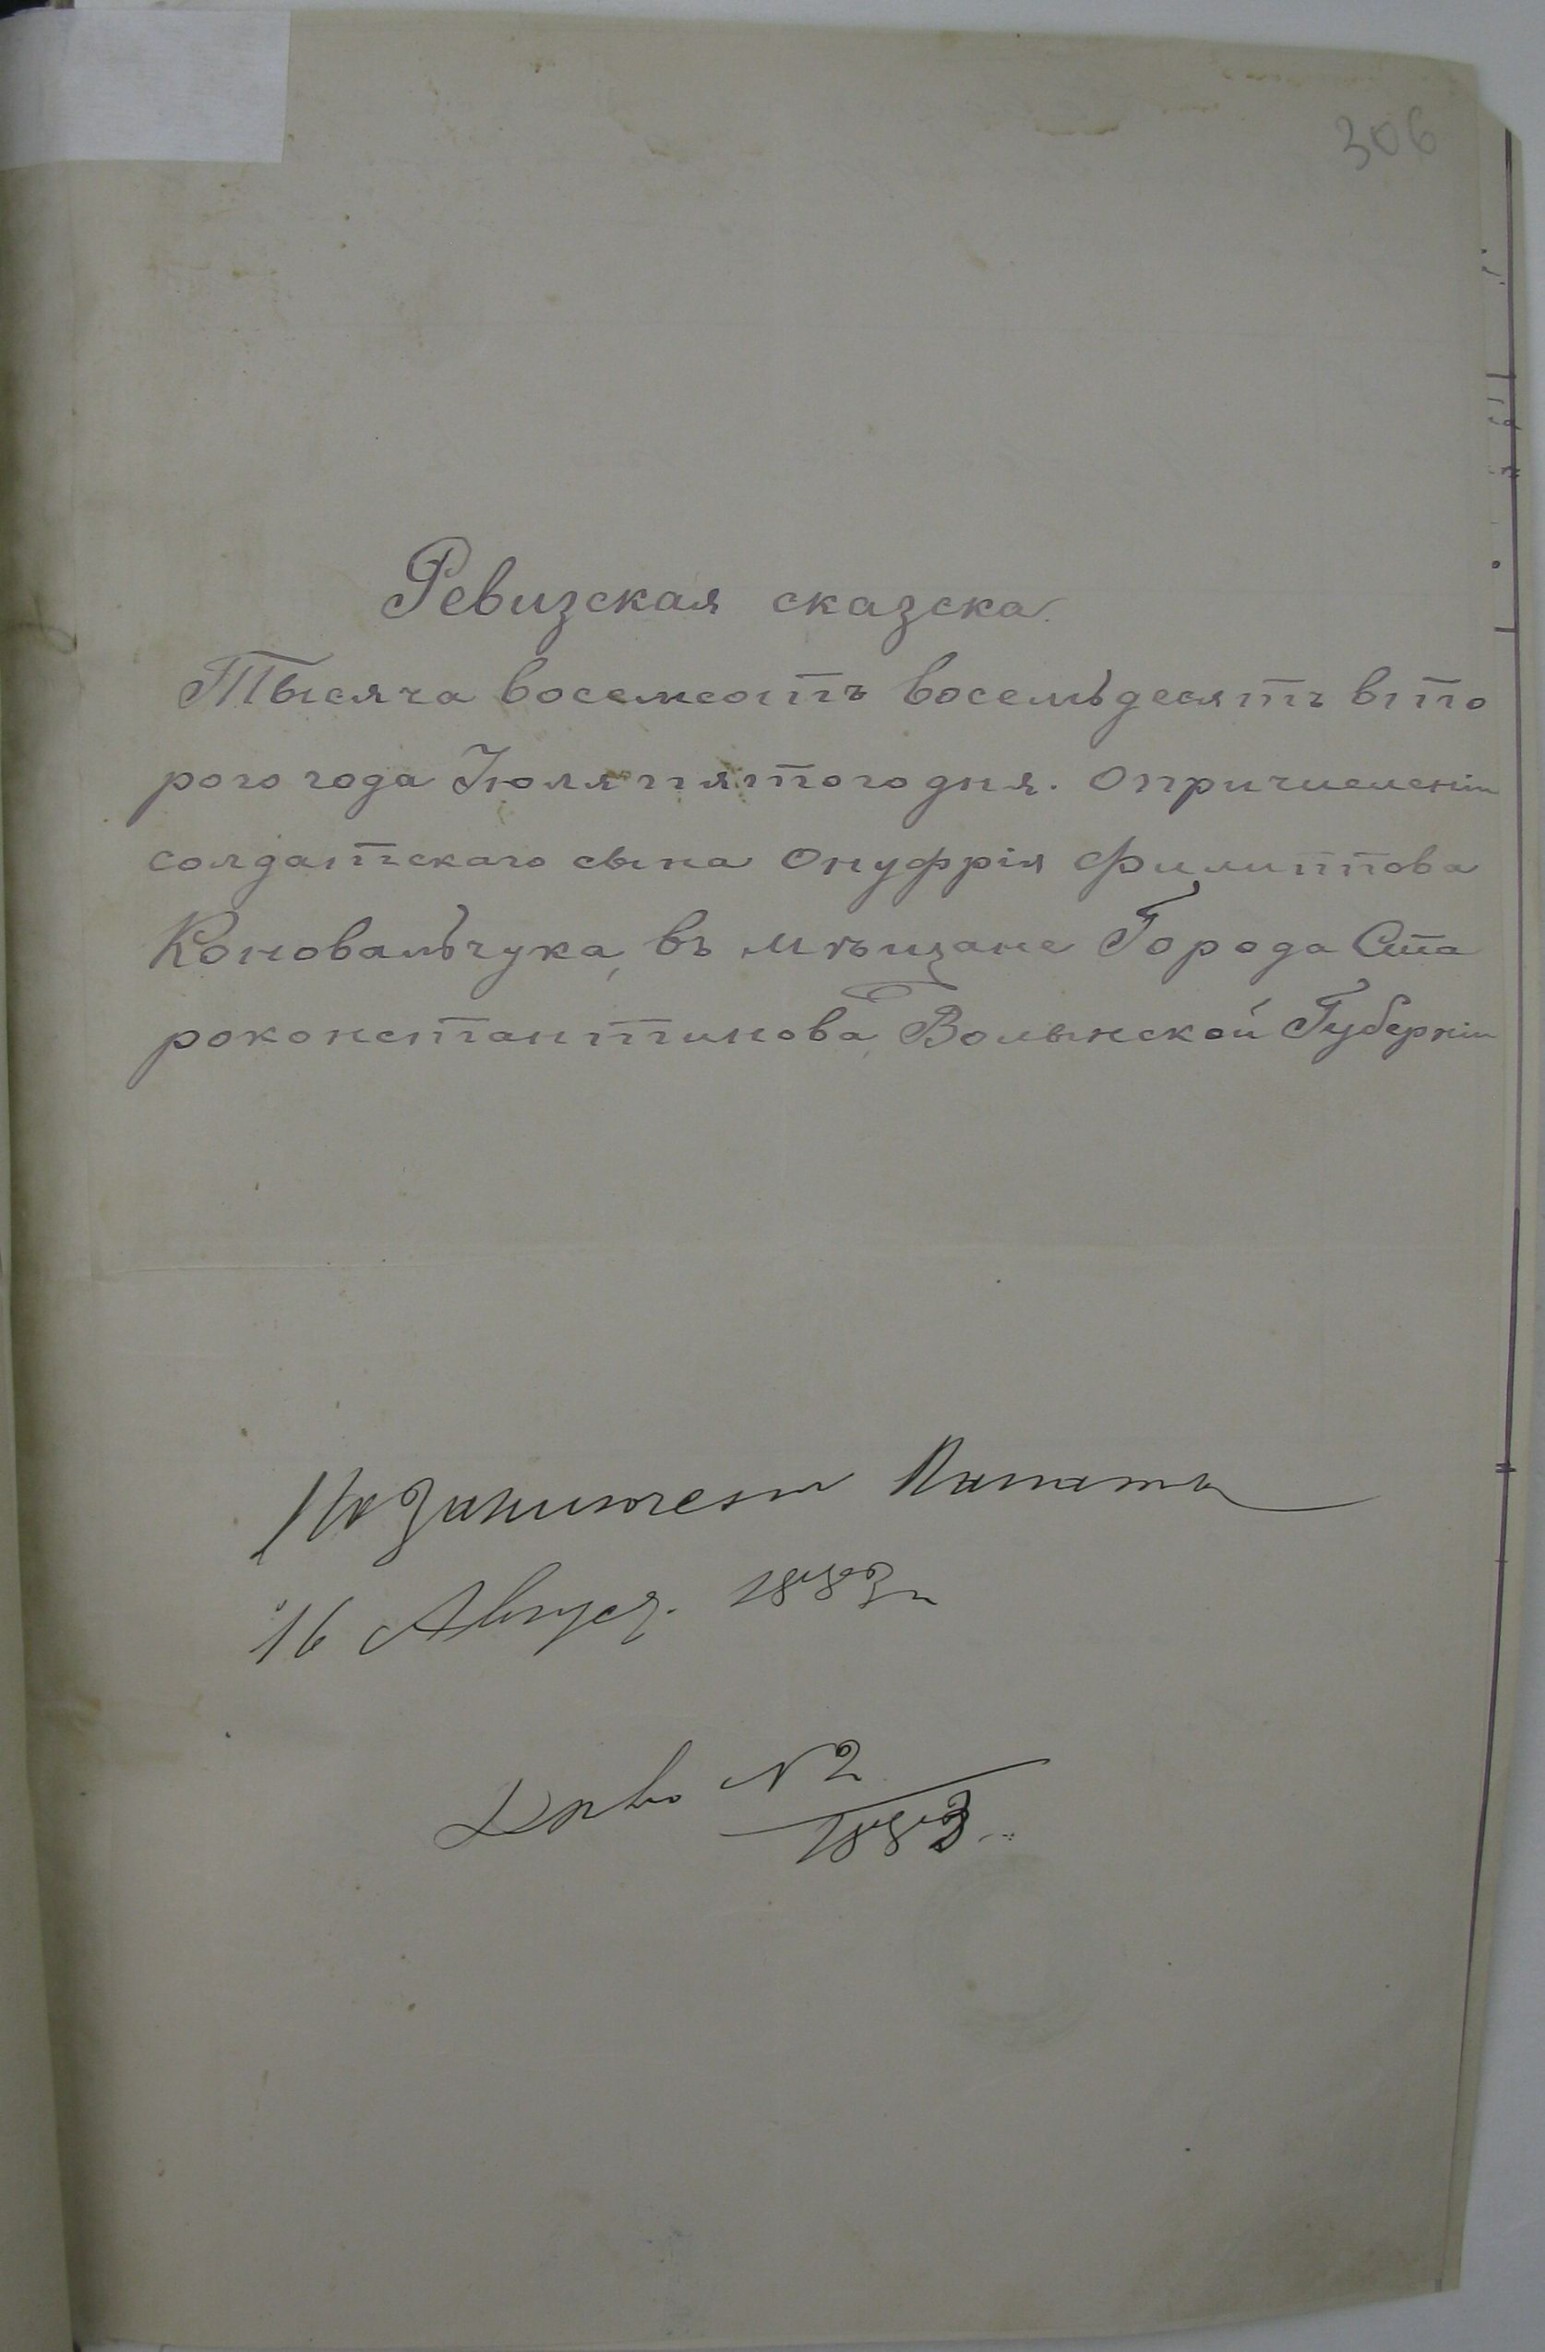 306
Ревизская сказска.
Тысяча восемсотъ восемьдесятъ вто
рого года Іюля пятого дня. О причисленіи
солдатскаго сына Онуфрія Филиппова
Коновальчука, въ мѣщане Города Ста
роконстантинова, Волынской Губерніи
По заключен Палаты
16 Авгус. 1883 г
Дѣло N 2
1883